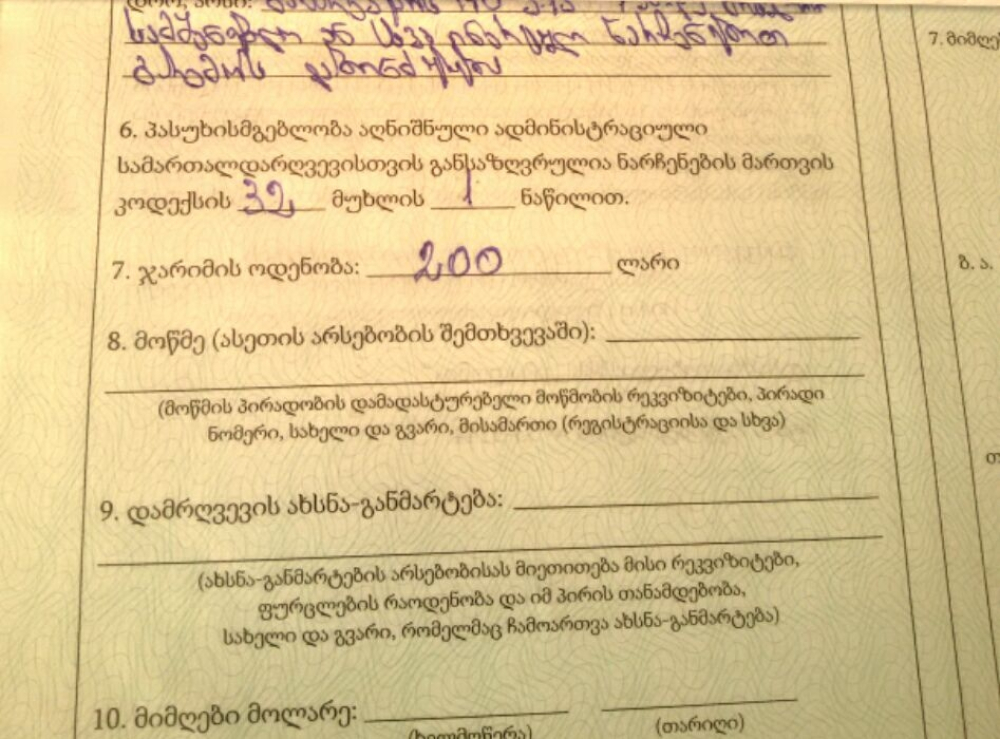 სამშენებლო ან სხვა ინერტული ნარჩენებით
გარემოს დაბინძურება
6. პასუხისმგებლობა აღნიშნული ადმინისტრაციული
სამართალდარღვევისთვის განსაზღვრულია ნარჩენების მართვის
კოდექსის 32 მუხლის 1 ნაწილით.
7. ჯარიმის ოდენობა: 200 ლარი
8. მოწმე (ასეთის არსებობის შემთხვევაში):
(მოწმის პირადობის დამადასტურებელი მოწმობის რეკვიზიტები, პირადი
ნომერი, სახელი და გვარი, მისამართი (რეგისტრაციისა და სხვა)
9. დამრღვევის ახსნა-განმარტება:
(ახსნა-განმარტების არსებობისას მიეთითება მისი რეკვიზიტები,
ფურცლების რაოდენობა და იმ პირის თანამდებობა,
სახელი და გვარი, რომელმაც ჩამოართვა ახსნა-განმარტება)
10. მიმღები მოლარე:
(ხელმოწერა) (თარიღი)
7.
ბ. ა.